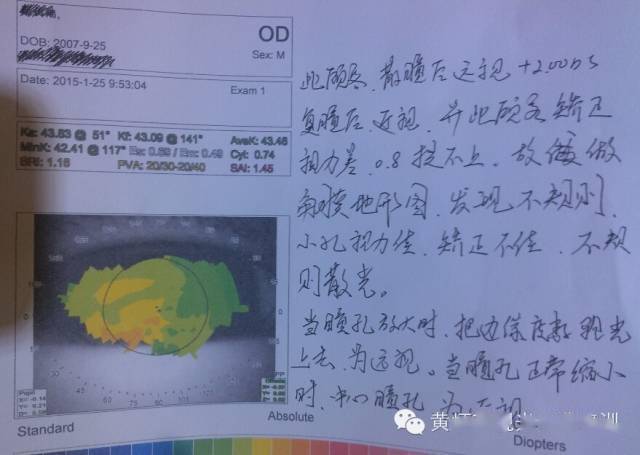 OD
DOB: 2007-9-25
Sex: M
Date: 2015-1-25 9:53:04
Exam 1
Ks: 43.83 @ 51° Kf: 43.09 @ 141° AveK: 43.46
MinK: 42.41 @ 117° Es: 0.69 / Em: 0.49 Cyl: 0.74
SRI: 1.16 PVA: 20/30-20/40 SAI: 1.45
此顾客，散瞳后远视 +2.00DS
复瞳后，近视，并此顾客矫正
视力差，0.8提不上，故建做
角膜地形图，发现不规则，
小孔视力佳，矫正不佳，不规
则散光。
当瞳孔放大时，把边缘度数验光
上去，为远视。当瞳孔正常缩小
时，中心瞳孔为近视
Standard
Absolute
Diopters